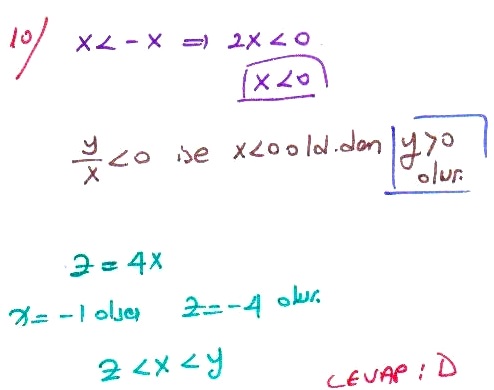 10/ x < -x ⇒ 2x < 0
x < 0
y/x < 0 ise x < 0 old.dan y > 0
olur.
z = 4x
x = -1 olsa z = -4 olur.
z < x < y
CEVAP : D